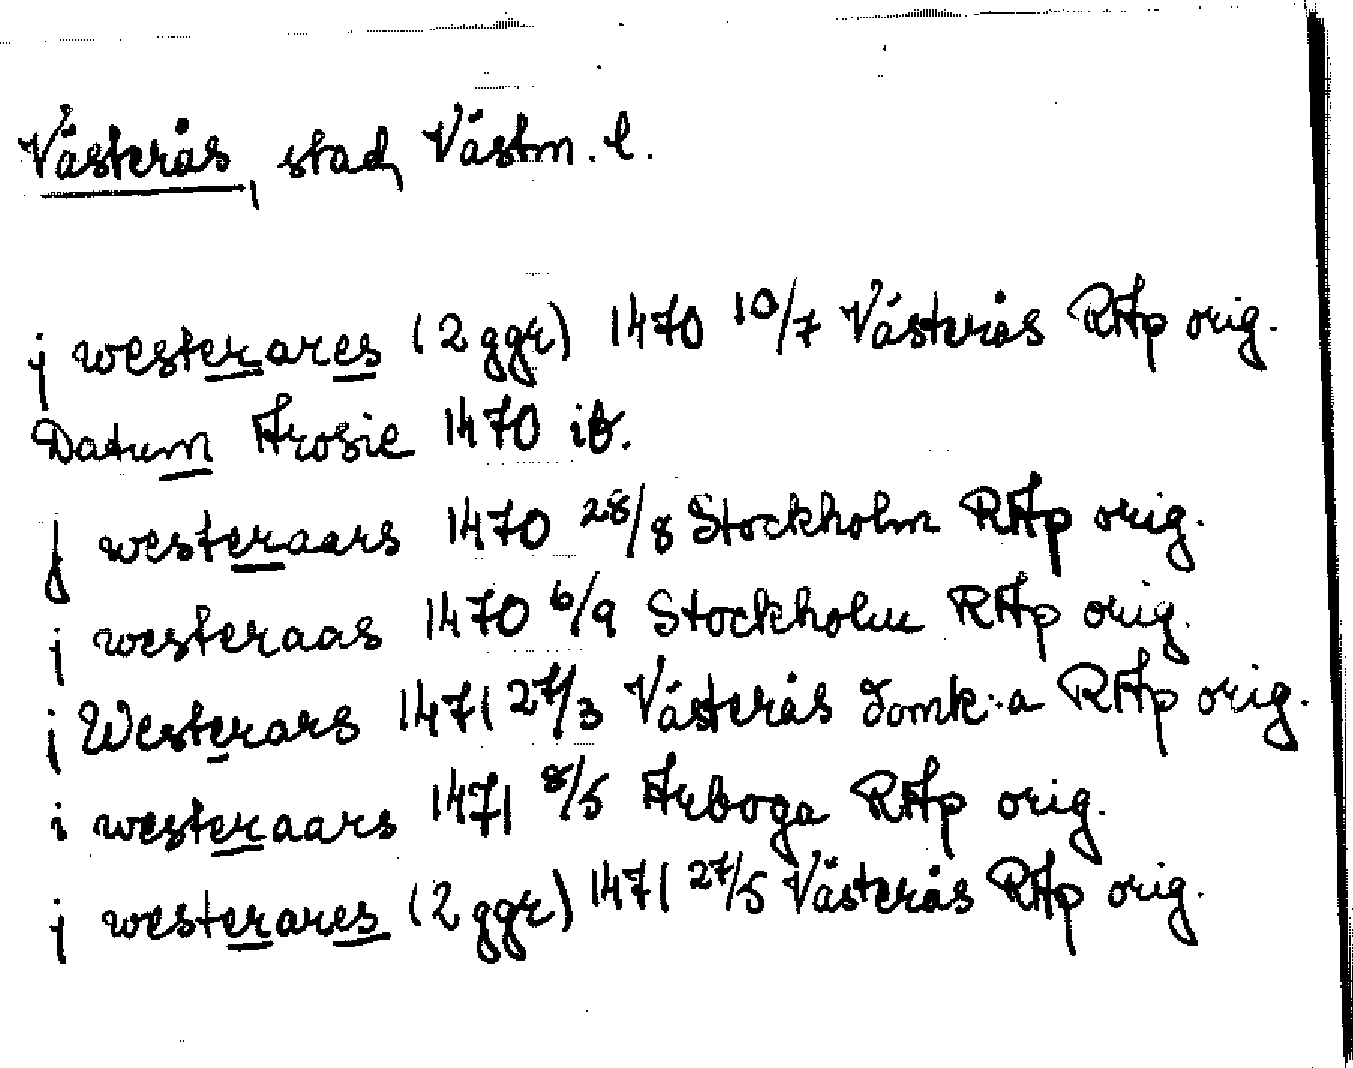 Västerås, stad, Västm. l.
j westerares (2 ggr) 1470 10/7 Västerås RAp orig.
Datum Arosie 1470 ib.
J westeraars 1470 28/8 Stockholm RAp orig.
j westeraas 1470 6/9 Stockholm RAp orig.
j Westerars 1471 27/3 Västerås domk:a RAp orig.
i westeraars 1471 8/5 Arboga RAp orig.
j westerares (2 ggr) 1471 27/5 Västerås RAp orig.